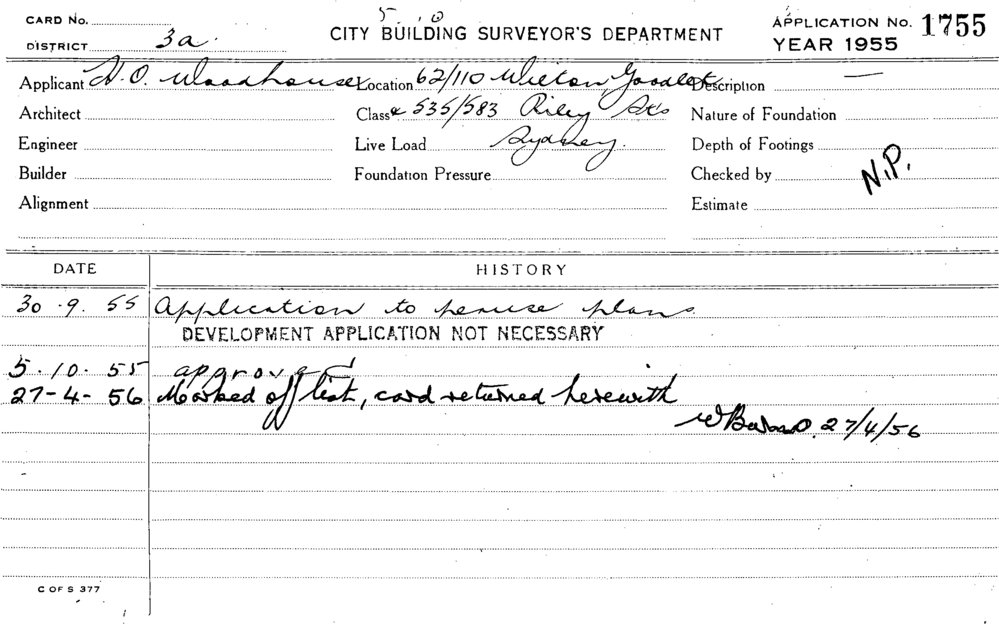 5. 10
CARD No.
DISTRICT 3a.
CITY BUILDING SURVEYOR'S DEPARTMENT
APPLICATION No. 1755
YEAR 1955
Applicant H. O. Woodhouse Location 62/110 Wilton, Goodlet Description —
Architect Class & 535/583 Riley Sts Nature of Foundation
Engineer Live Load Sydney. Depth of Footings
Builder Foundation Pressure Checked by N.P.
Alignment Estimate
DATE HISTORY
30.9.55 Application to peruse plans.
DEVELOPMENT APPLICATION NOT NECESSARY
5.10.55 approved
27-4-56 Marked off list, card returned herewith
27/4/56
C OF S 377